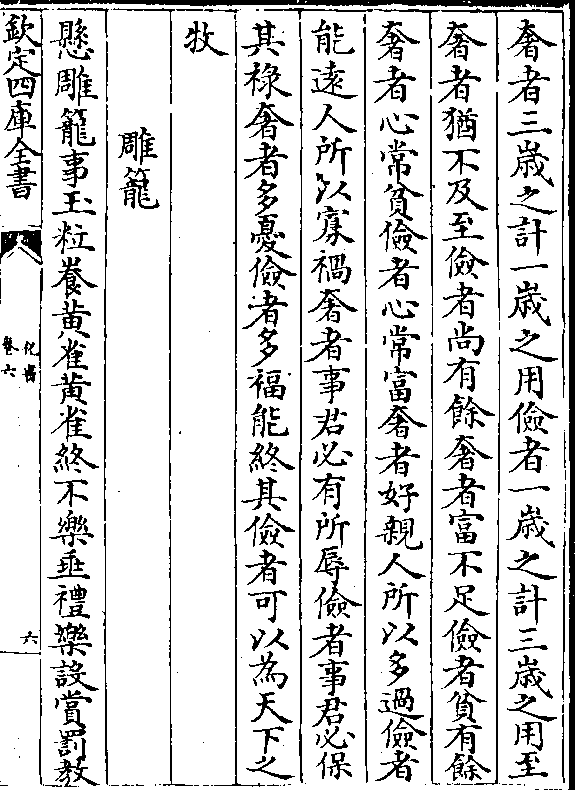 奢者三歲之計一歲之用儉者一歲之計三歲之用至
奢者猶不及至儉者尚有餘奢者富不足儉者貧有餘
奢者心常貧儉者心常富奢者好親人所以多過儉者
能遠人所以寡禍奢者事君必有所辱儉者事君必保
其祿奢者多憂儉者多福能終其儉者可以為天下之
牧
雕籠
懸雕籠事玉粒養黃雀黃雀終不樂垂禮樂設賞罰教
欽定四庫全書
化書
卷六
六